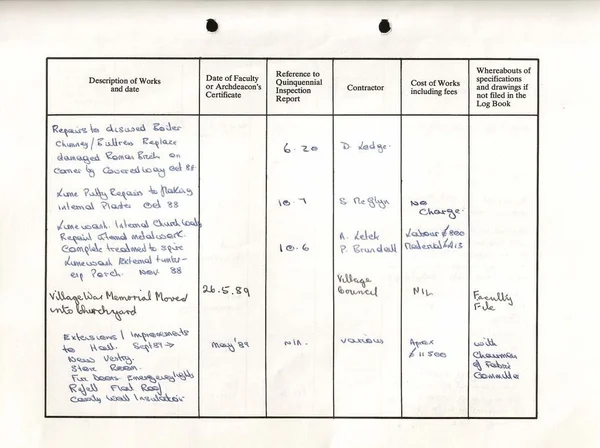 Description of Works
and date
Date of Faculty
or Archdeacon's
Certificate
Reference to
Quinquennial
Inspection
Report
Contractor
Cost of Works
including fees
Whereabouts of
specifications
and drawings if
not filed in the
Log Book
Repairs to disused Boiler
Chimney/Buttress Replace
damaged Roman Brick on
corner by Covered way Oct 88
6.20
D Lodge.
Lime Putty Repairs to flaking
internal Plaster Oct 88
10.7
S
No
Charge.
Limewash. Internal Church walls
Repaint internal metalwork
Complete treatment to spire
Limewash External timber-
Porch. Nov. 88
10.6
A.
P. Brundell
Labour £800
Material £413
Village War Memorial Moved
into Churchyard
26.5.89
Village
Council
NIL
Faculty
File
Extensions / Improvements
to Hall. Sept 87 →
New Vestry.
Store Room.
Fire Doors. Emergency lights
Refelt Flat Roof
Cavity Wall Insulation
May '89
N/A.
Various
Aprox
£11500
with
Chairman
of Fabric
Committee